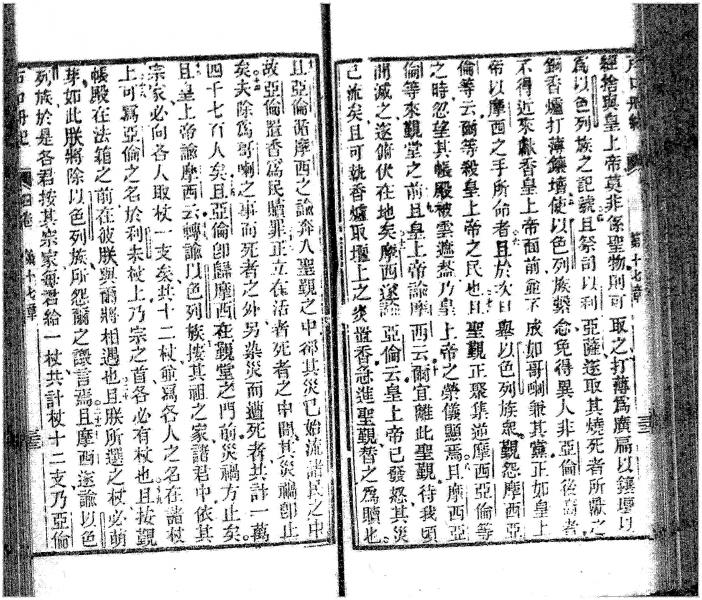 戶口冊紀 第十七章
經捨與皇上帝莫非係聖物則可取之打薄爲廣扁以鑲壇以
爲以色列族之記號且祭司以利亞薩遂取其燒死者所獻之
銅香爐打薄鑲壇使以色列族繫念免得異人非亞倫後裔者
不得近來獻香皇上帝面前並不成如哥喇兼其黨正如皇上
帝以摩西之手所命者且於次日舉以色列族衆覲怨摩西亞
倫等云爾等殺皇上帝之民也且聖覲正聚集逆摩西亞倫等
之時忽望其帳殿被雲遮葢乃皇上帝之榮儀顯焉且摩西亞
倫等來覲堂之前且皇上帝諭摩西云爾宜離此聖覲待我頃
間滅之遂俯伏在地矣摩西遂諭亞倫云皇上帝已發怒其災
已流矣且可執香爐取壇上之炎置香急進聖覲替之爲贖也
且亞倫循摩西之諭奔入聖覲之中卻其災已始流諸民之中
故亞倫置香爲民贖罪正立在活者死者之中間其災禍卽止
矣夫除爲哥喇之事而死者之外另染災而遭死者共計一萬
四千七百人矣且亞倫卽歸摩西在覲堂之門前災禍方止矣
且皇上帝諭摩西云轉諭以色列族按其祖之家諸君中依其
宗家必向各人取杖一支矣共十二杖並寫各人之名在諸杖
上可寫亞倫之名於利未杖上乃宗之首各必有杖也且按覲
帳殿在法箱之前在彼朕與爾將相遇也且朕所選之杖必萌
芽如此朕將除以色列族所怨爾之讟言焉且摩西遂諭以色
列族於是各君按其宗家每君給一杖共計杖十二支乃亞倫
戶口冊紀 四卷 第十七章